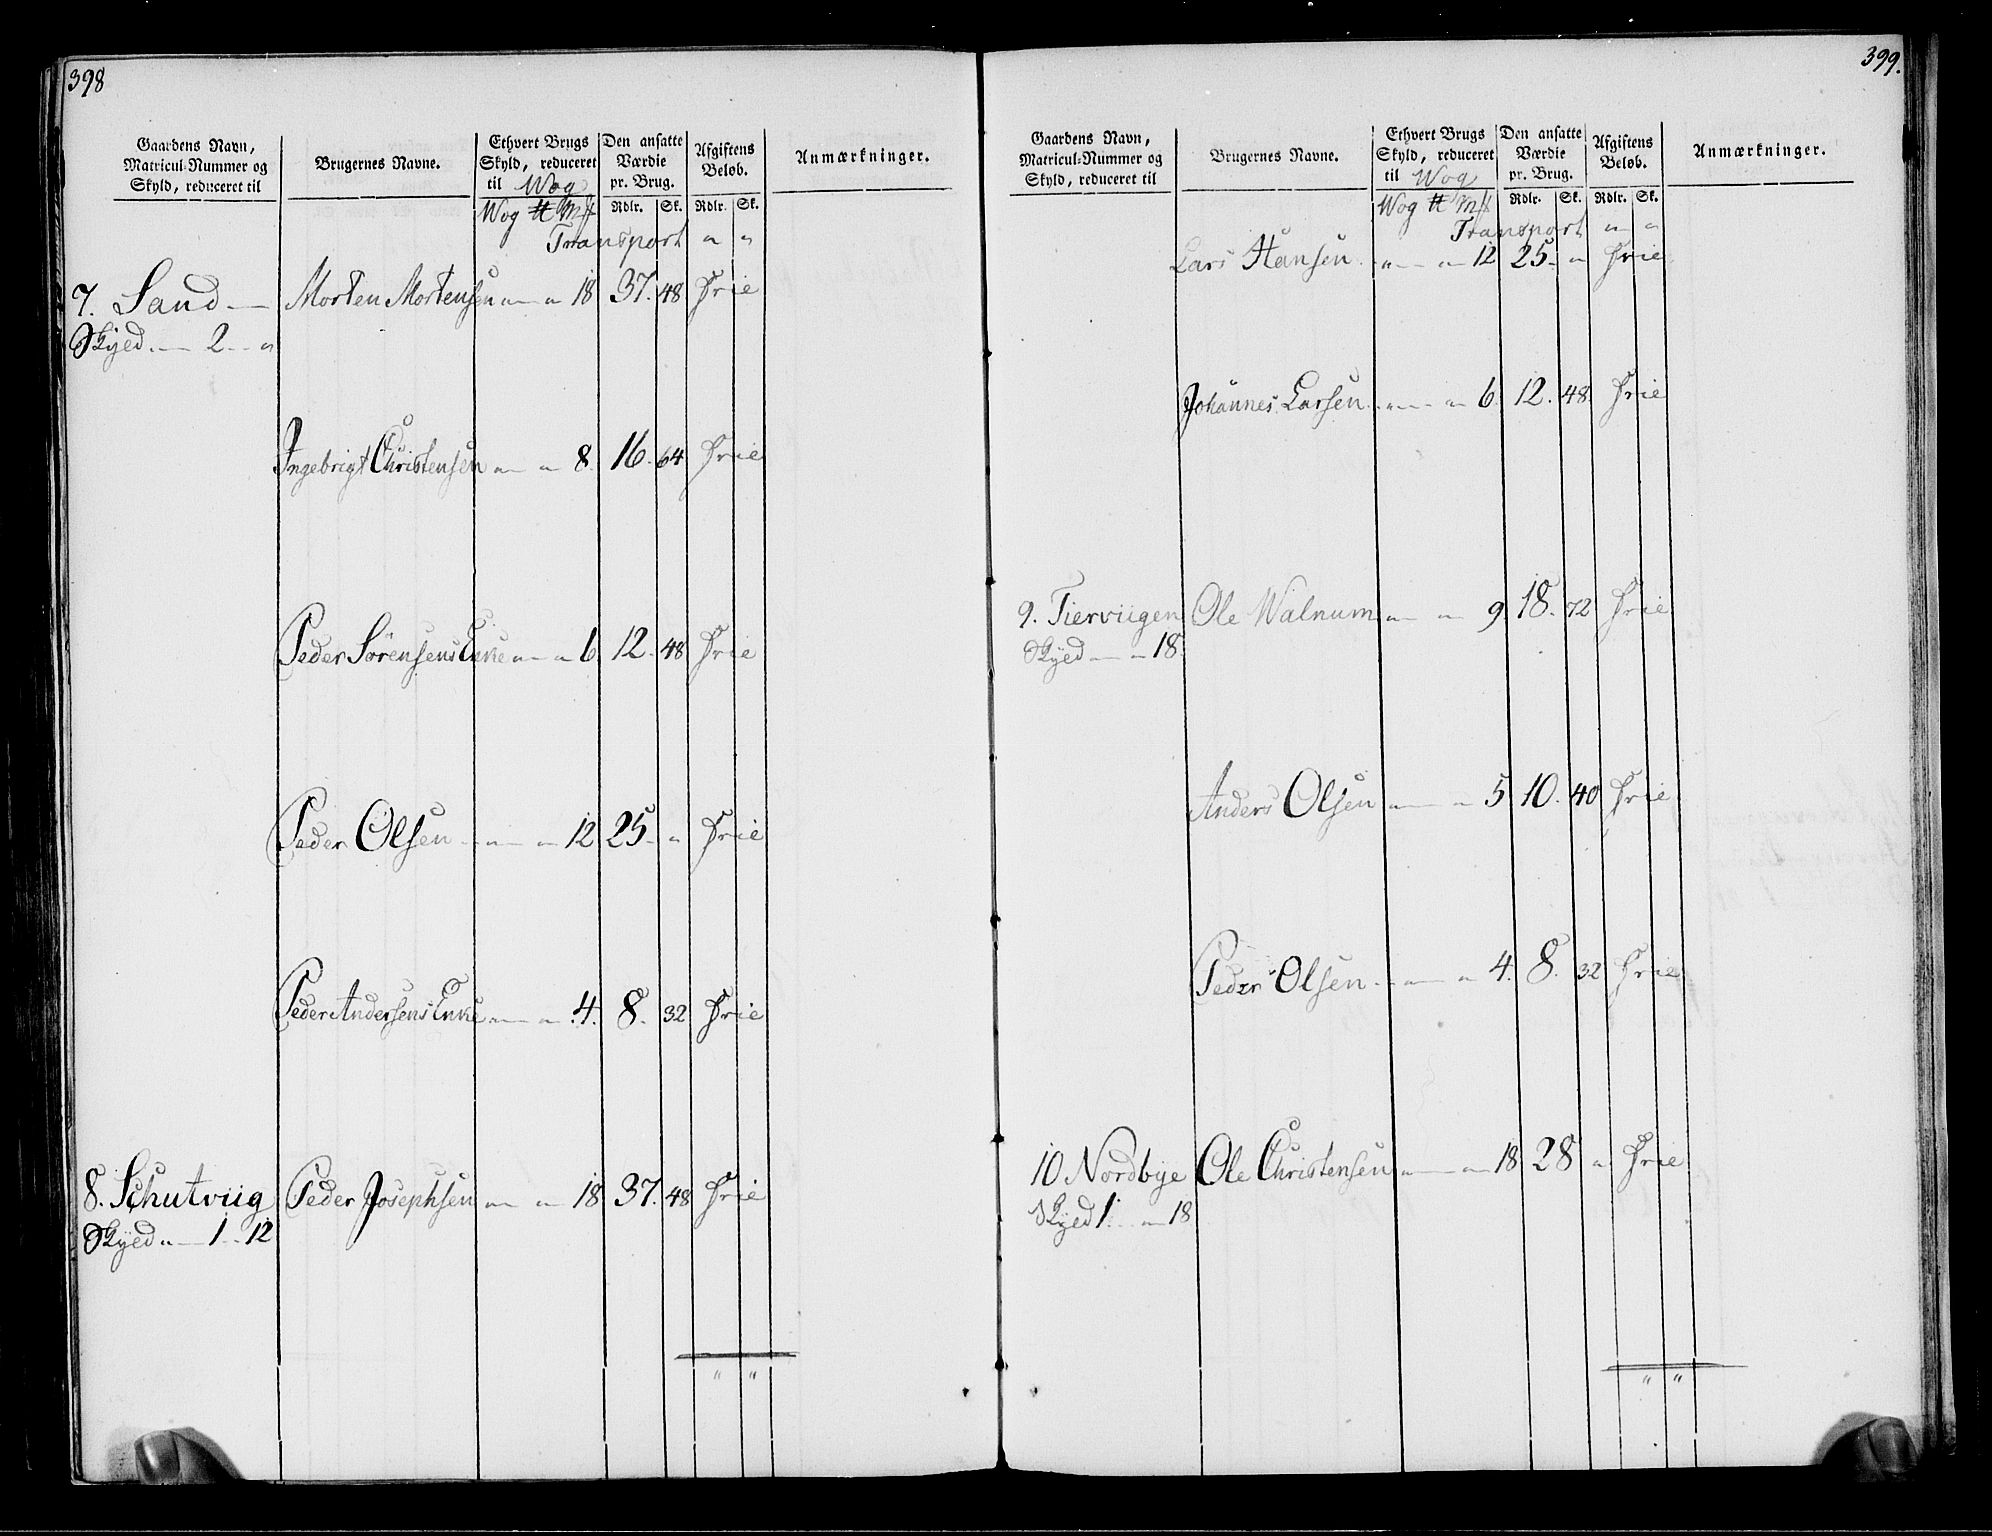 398
Gaardens Navn, Matricul-Nummer og Skyld, reduceret til
Brugernes Navne.
Ethvert Brugs Skyld, reduceret til Wog
Den ansatte Værdie pr. Brug.
Afgiftens Beløb.
Anmærkninger.
Wog ℔ Mk Rdlr. Sk. Rdlr. Sk.
Transport " "
7. Sand — Morten Mortensen " — " 18 37. 48 Frie
Skyld " — 2 — "
Ingebrigt Christensen " — " 8. 16. 64 Frie
Peder Sørensens Enke " — " 6 12. 48 Frie
Peder Olsen " — " 12 25 — " Frie
Peder Andersens Enke " — " 4. 8. 32 Frie
8. Schutviig Peder Josephsen " — " 18 37. 48 Frie
Skyld " — 1 — 12
" "
399.
Gaardens Navn, Matricul-Nummer og Skyld, reduceret til
Brugernes Navne.
Ethvert Brugs Skyld, reduceret til Wog
Den ansatte Værdie pr. Brug.
Afgiftens Beløb.
Anmærkninger.
Wog ℔ Mk Rdlr. Sk. Rdlr. Sk.
Transport " "
Lars Hansen " — " 12 25 — " Frie
Johannes Larsen " — " 6. 12. 48. Frie
9. Tierviigen Ole Walnum " — " 9. 18. 72 Frie
Skyld " — " 18
Anders Olsen " — " 5 10. 40 Frie
Peder Olsen " — " 4. 8. 32 Frie
10 Nordbye Ole Christensen " — " 18 28 " Frie
Skyld 1. — " 18
" "